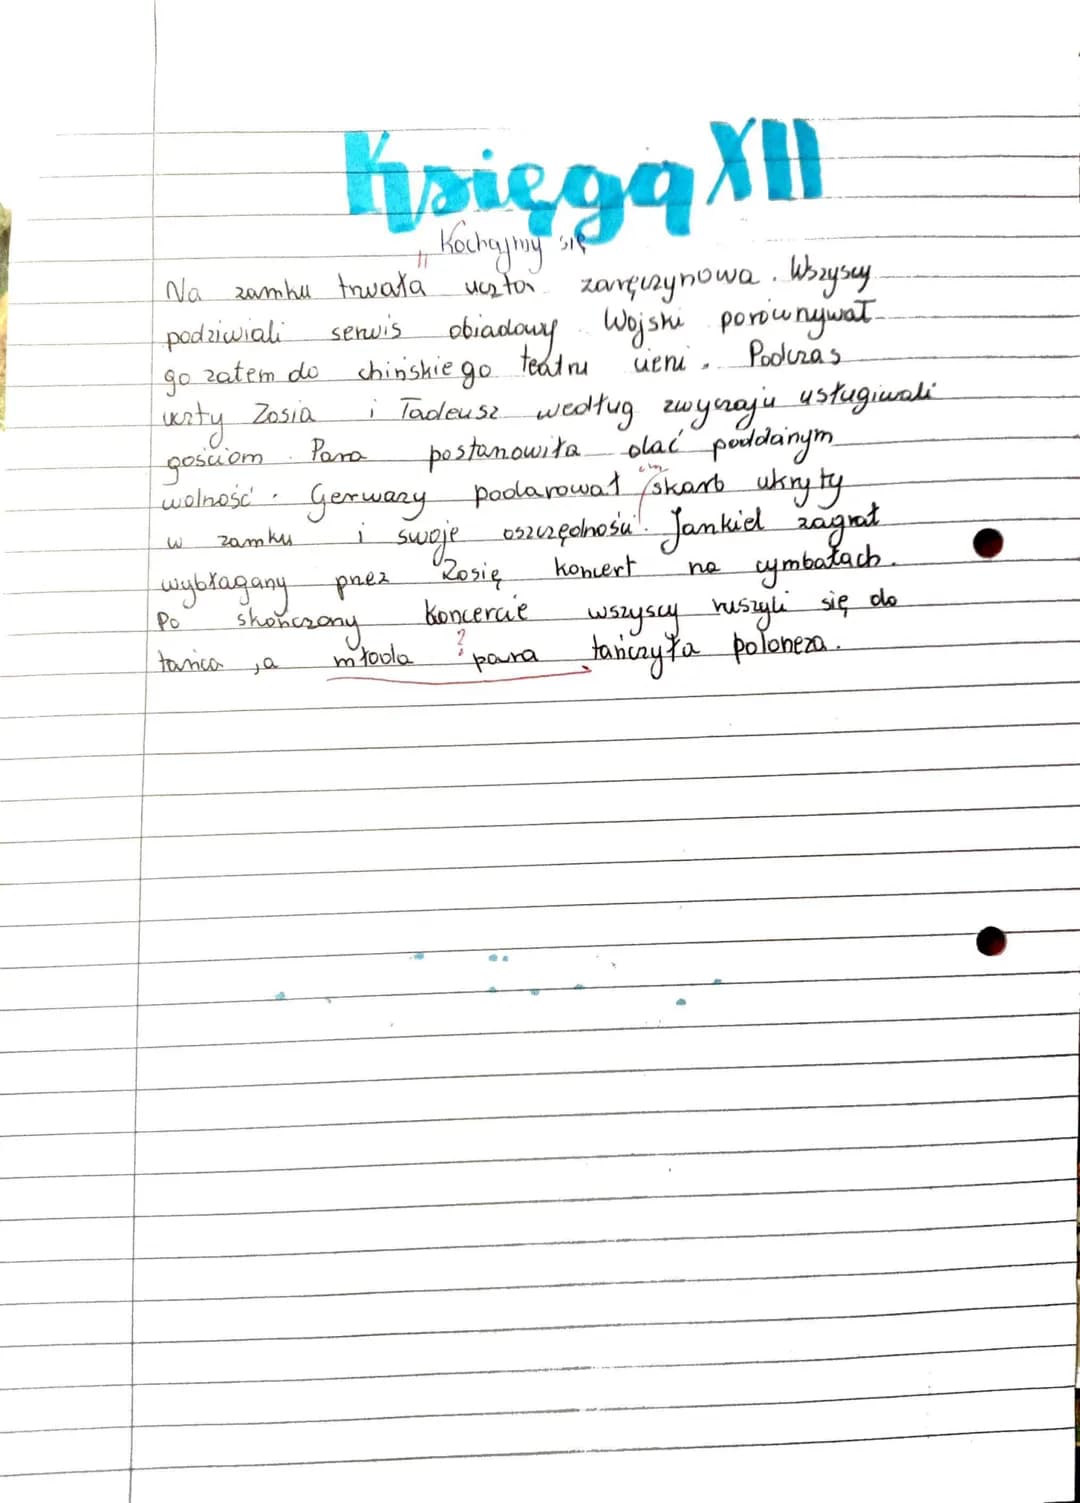 Księga XII
"Kochajmy się
Na zamku trwała uczta zaręczynowa. Wszyscy
podziwiali serwis obiadowy. Wojski porównywał
go zatem do chińskiego teatru cieni. Podczas
uczty Zosia i Tadeusz według zwyczaju usługiwali
gościom. Para postanowiła dać poddanym
wolność. Gerwazy podarował im skarb ukryty
w zamku i swoje oszczędności. Jankiel zagrał
wybłagany przez Zosię koncert na cymbałach.
Po skończony koncercie wszyscy ruszyli się do
tańca, a młoda ? para tańczyła poloneza.